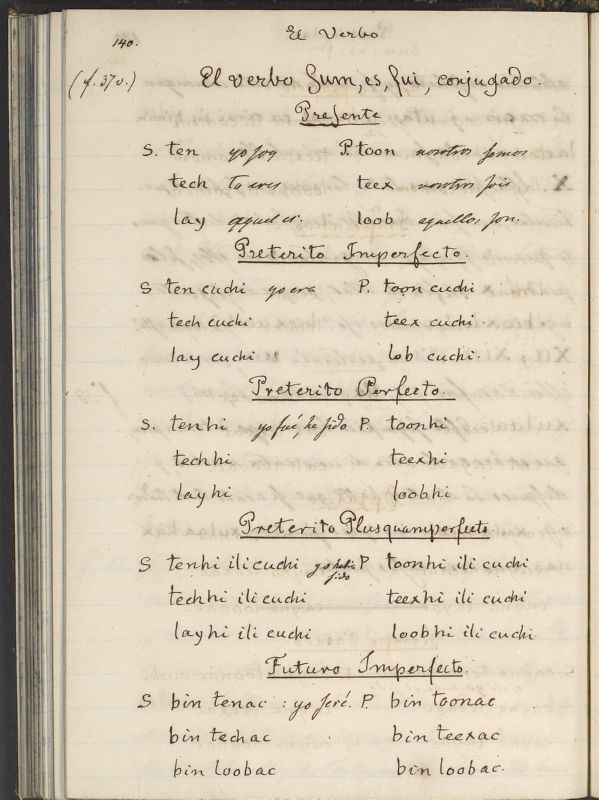 El Verbo
140.
(f. 37v.) El verbo Sum, es, fui, conjugado.
Presente
S. ten yo soy P. toon nosotros somos
tech tu eres teex vosotros sois
lay aquel es: loob aquellos son.
Preterito Imperfecto.
S ten cuchi yo era P. toon cuchi
tech cuchi teex cuchi.
lay cuchi lob cuchi.
Preterito Perfecto.
S. tenhi yo fué, he sido P. toonhi
techhi teexhi
layhi loobhi
Preterito Plusquamperfecto
S tenhi ili cuchi yo habia sido P toonhi ili cuchi
techhi ili cuchi teexhi ili cuchi
layhi ili cuchi loobhi ili cuchi
Futuro Imperfecto.
S bin tenac : yo seré. P. bin toonac
bin techac bin teexac
bin loobac bin loobac.